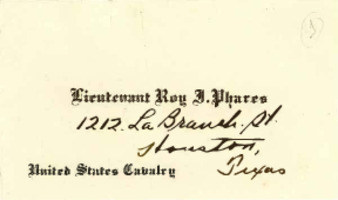 Lieutenant Roy J. Phares
1212. La Branch. St.
Houston,
United States Cavalry Texas